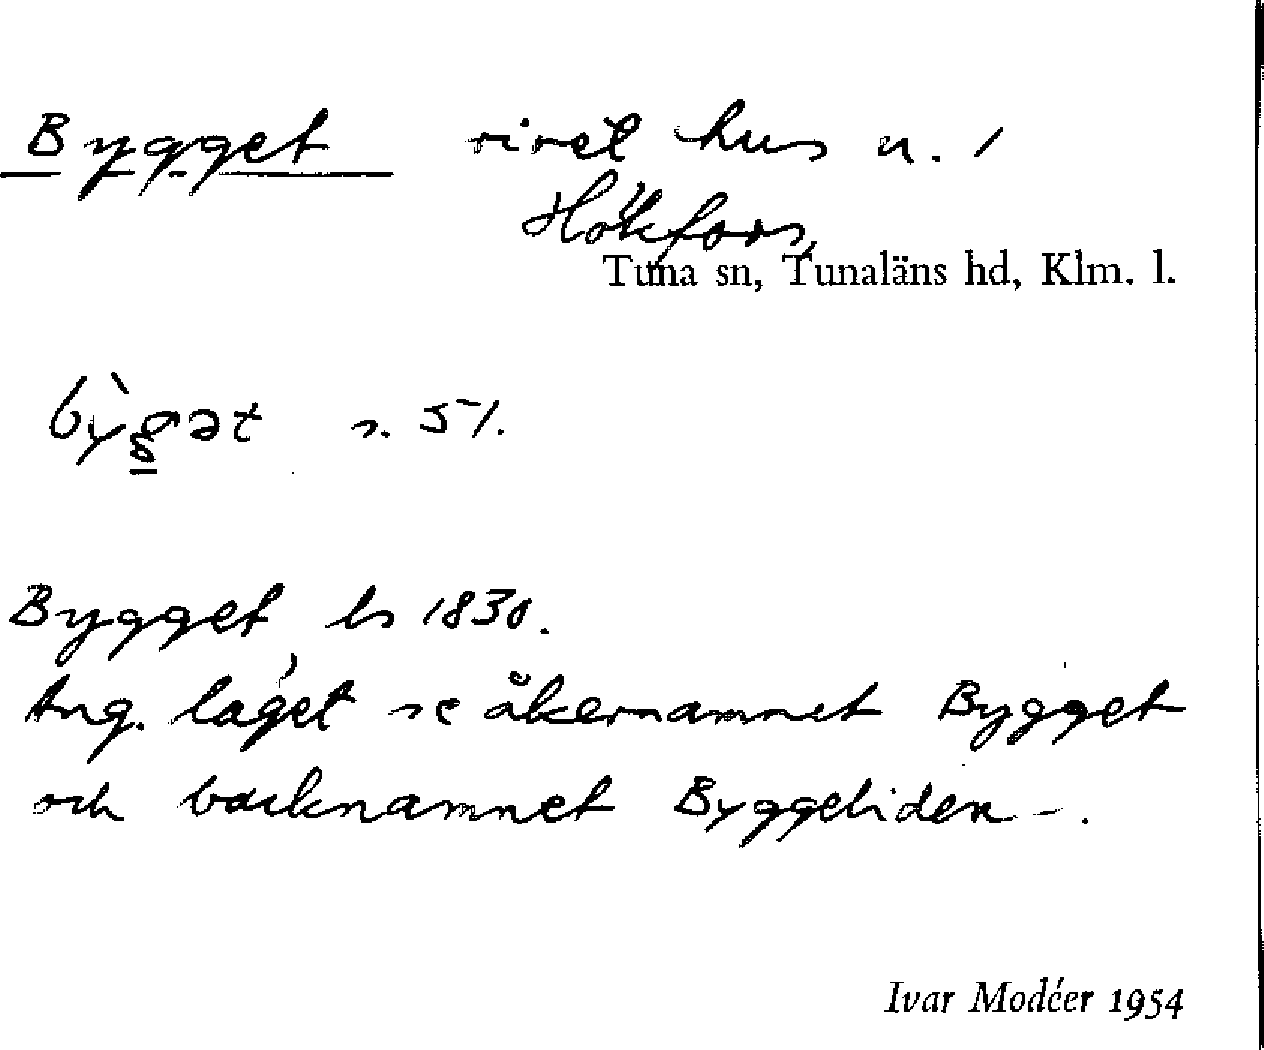 Bygget rivet hus n. 1
Hökfors,
Tuna sn, Tunaläns hd, Klm. l.
bỳgət s. 51.
Bygget ls 1830.
Ang. läget se åkernamnet Bygget
och backnamnet Byggeliden –.
Ivar Modéer 1954